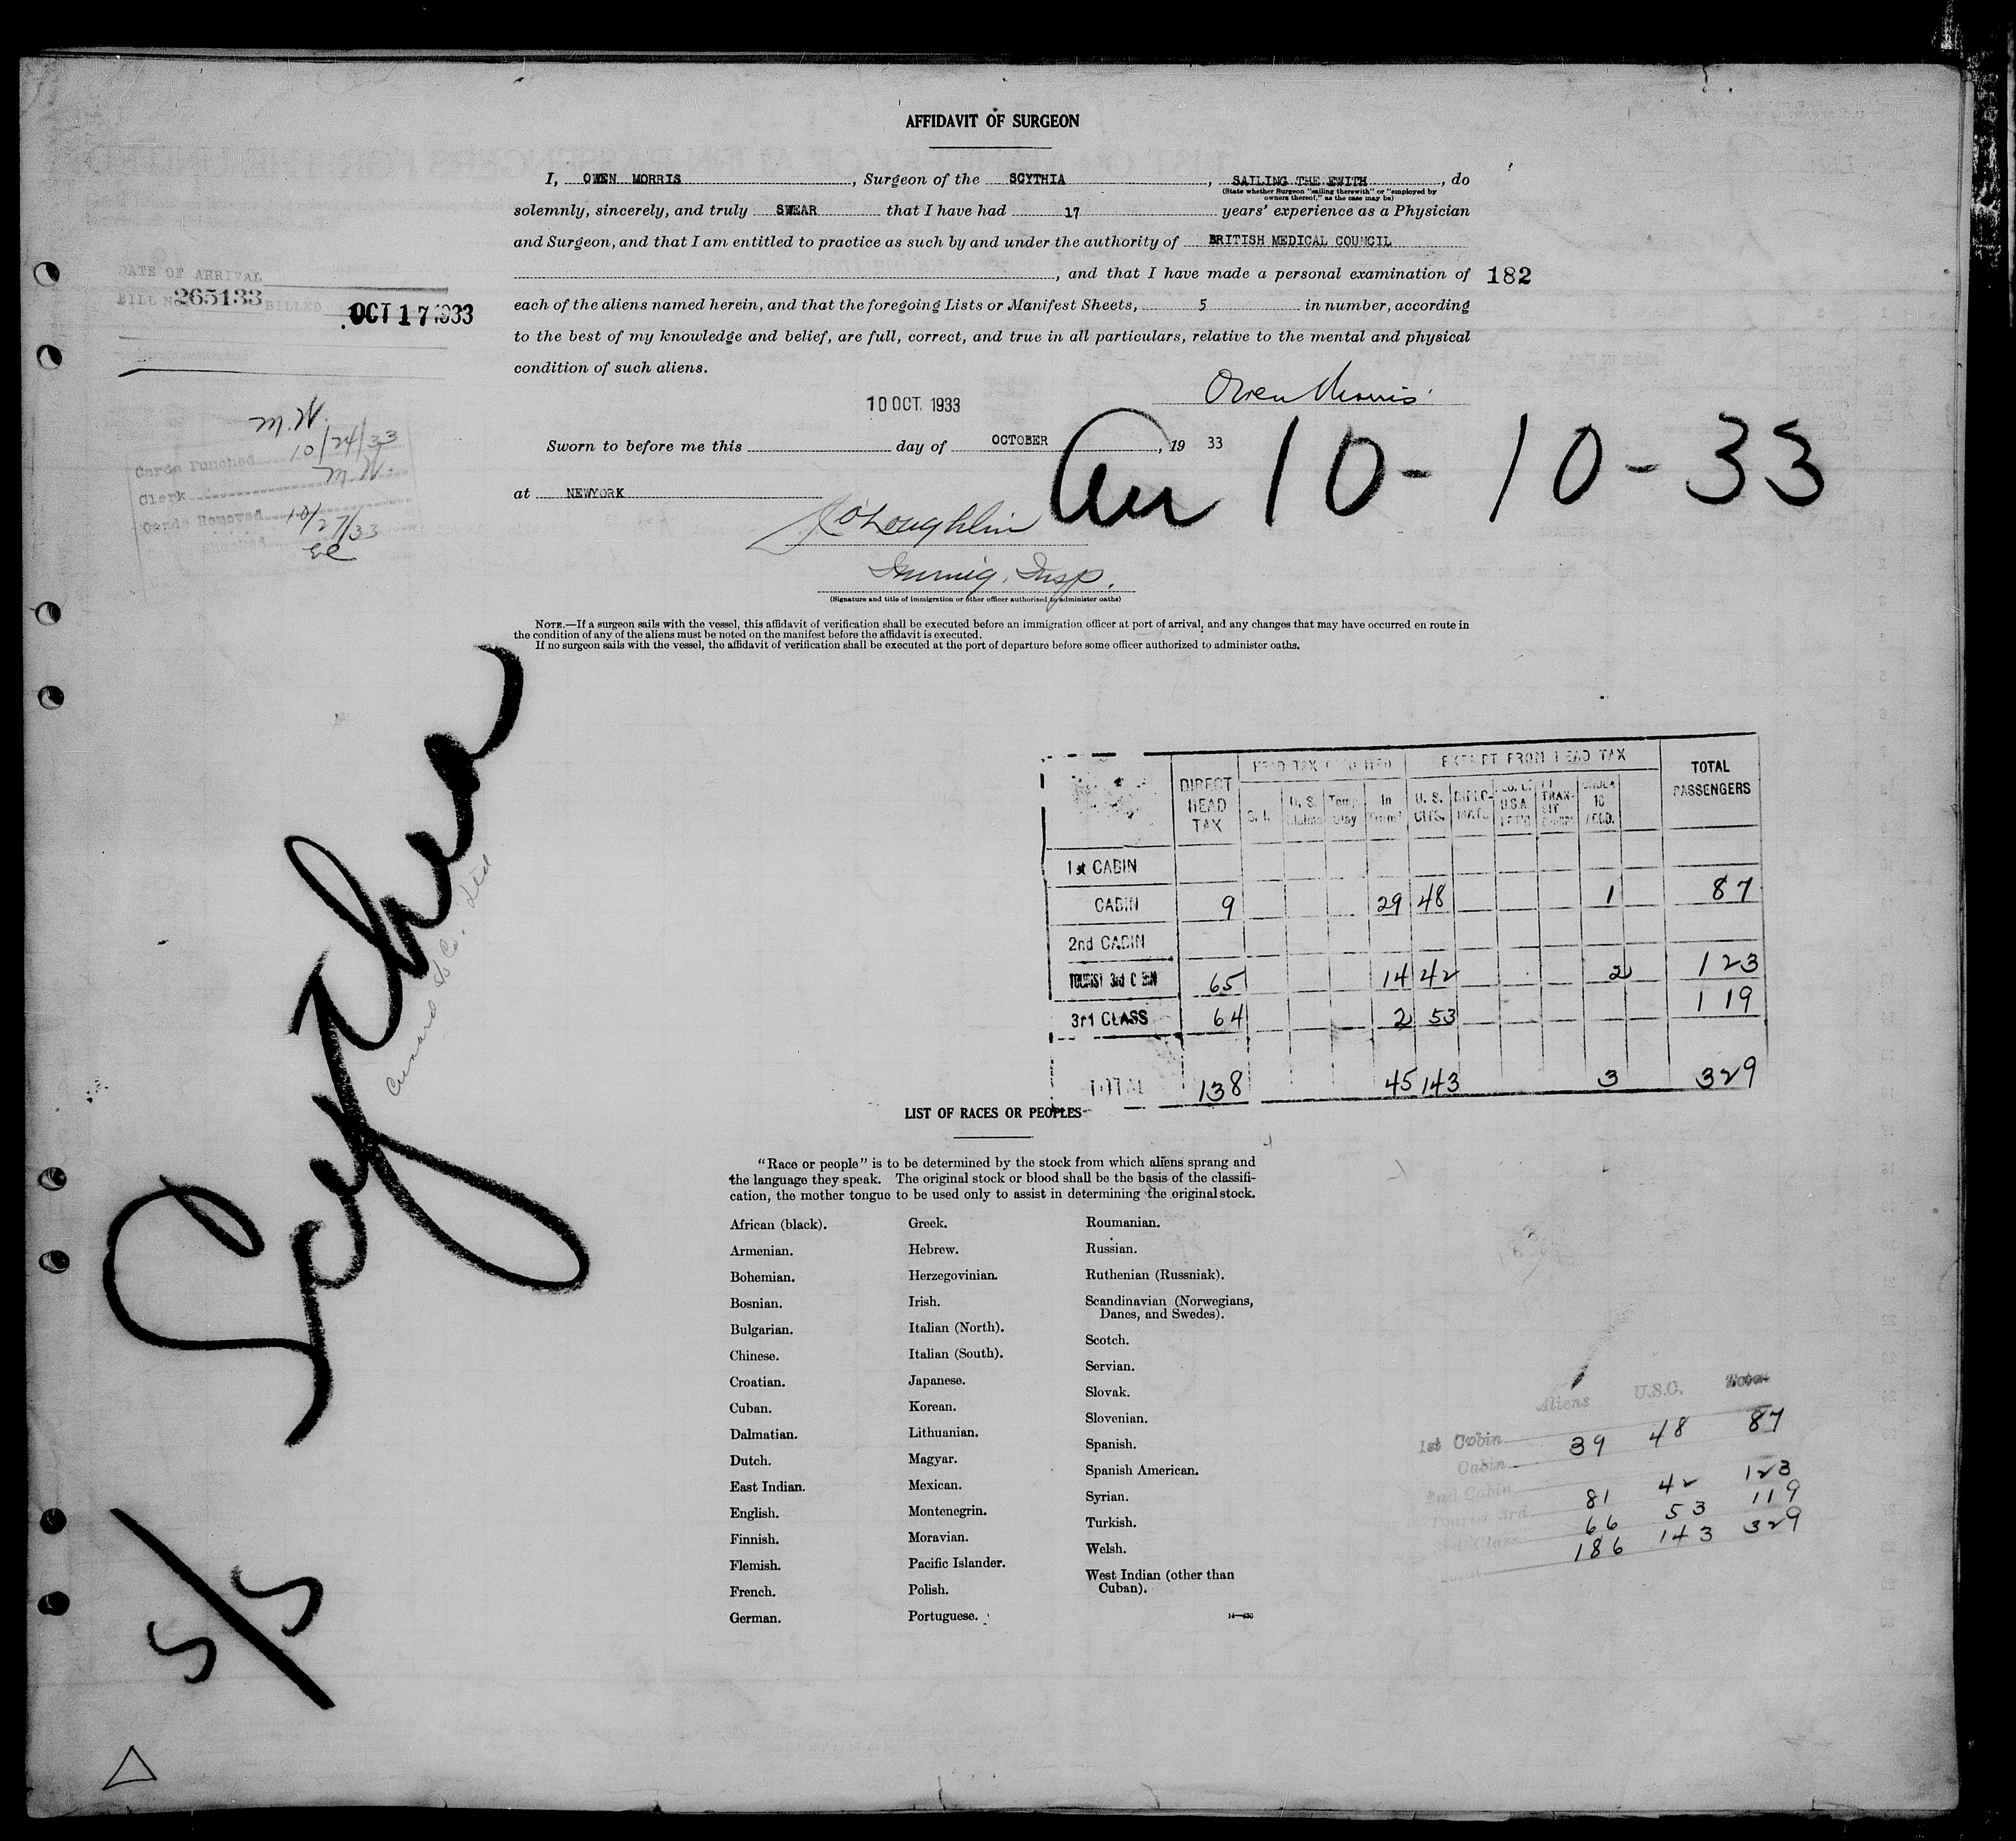 AFFIDAVIT OF SURGEON
I, OWEN MORRIS, Surgeon of the SCYTHIA, SAILING THE EWITH, do
(State whether Surgeon "sailing therewith" or "employed by
owners thereof," as the case may be)
solemnly, sincerely, and truly SWEAR that I have had 17 years' experience as a Physician
and Surgeon, and that I am entitled to practice as such by and under the authority of BRITISH MEDICAL COUNCIL
, and that I have made a personal examination of 182
each of the aliens named herein, and that the foregoing Lists or Manifest Sheets, 5 in number, according
to the best of my knowledge and belief, are full, correct, and true in all particulars, relative to the mental and physical
condition of such aliens.
DATE OF ARRIVAL
BILL No 265133 BILLED OCT 17 1933
Owen Morris
10 OCT. 1933
Sworn to before me this day of OCTOBER, 19 33
at NEWYORK
Arr 10-10-33
J O'Loughlin
Immig. Insp.
(Signature and title of immigration or other officer authorized to administer oaths)
M.W.
Cards Punched 10/24/33
Clerk M.W.
Cards Removed 10/27/33
NOTE.—If a surgeon sails with the vessel, this affidavit of verification shall be executed before an immigration officer at port of arrival, and any changes that may have occurred en route in
the condition of any of the aliens must be noted on the manifest before the affidavit is executed.
If no surgeon sails with the vessel, the affidavit of verification shall be executed at the port of departure before some officer authorized to administer oaths.
Scythia
Cunard SS Co. Ltd
5/5
DIRECT HEAD TAX
EXEMPT FROM HEAD TAX
TOTAL PASSENGERS
U. S. Claims Temp Stay In Transit U. S. CITS. DIPLO-MATS TRAN-SIT UNDER 16
1st CABIN
CABIN 9 29 48 1 87
2nd CABIN
TOURIST 3rd CABIN 65 14 42 2 123
3rd CLASS 64 2 53 119
TOTAL 138 45 143 3 329
LIST OF RACES OR PEOPLES
"Race or people" is to be determined by the stock from which aliens sprang and
the language they speak. The original stock or blood shall be the basis of the classifi-
cation, the mother tongue to be used only to assist in determining the original stock.
African (black).
Armenian.
Bohemian.
Bosnian.
Bulgarian.
Chinese.
Croatian.
Cuban.
Dalmatian.
Dutch.
East Indian.
English.
Finnish.
Flemish.
French.
German.
Greek.
Hebrew.
Herzegovinian.
Irish.
Italian (North).
Italian (South).
Japanese.
Korean.
Lithuanian.
Magyar.
Mexican.
Montenegrin.
Moravian.
Pacific Islander.
Polish.
Portuguese.
Roumanian.
Russian.
Ruthenian (Russniak).
Scandinavian (Norwegians,
Danes, and Swedes).
Scotch.
Servian.
Slovak.
Slovenian.
Spanish.
Spanish American.
Syrian.
Turkish.
Welsh.
West Indian (other than
Cuban).
Aliens U.S.C. Total
1st Cabin
Cabin 39 48 87
2nd Cabin
Tourist 3rd 81 42 123
3rd Class 66 53 119
Total 186 143 329